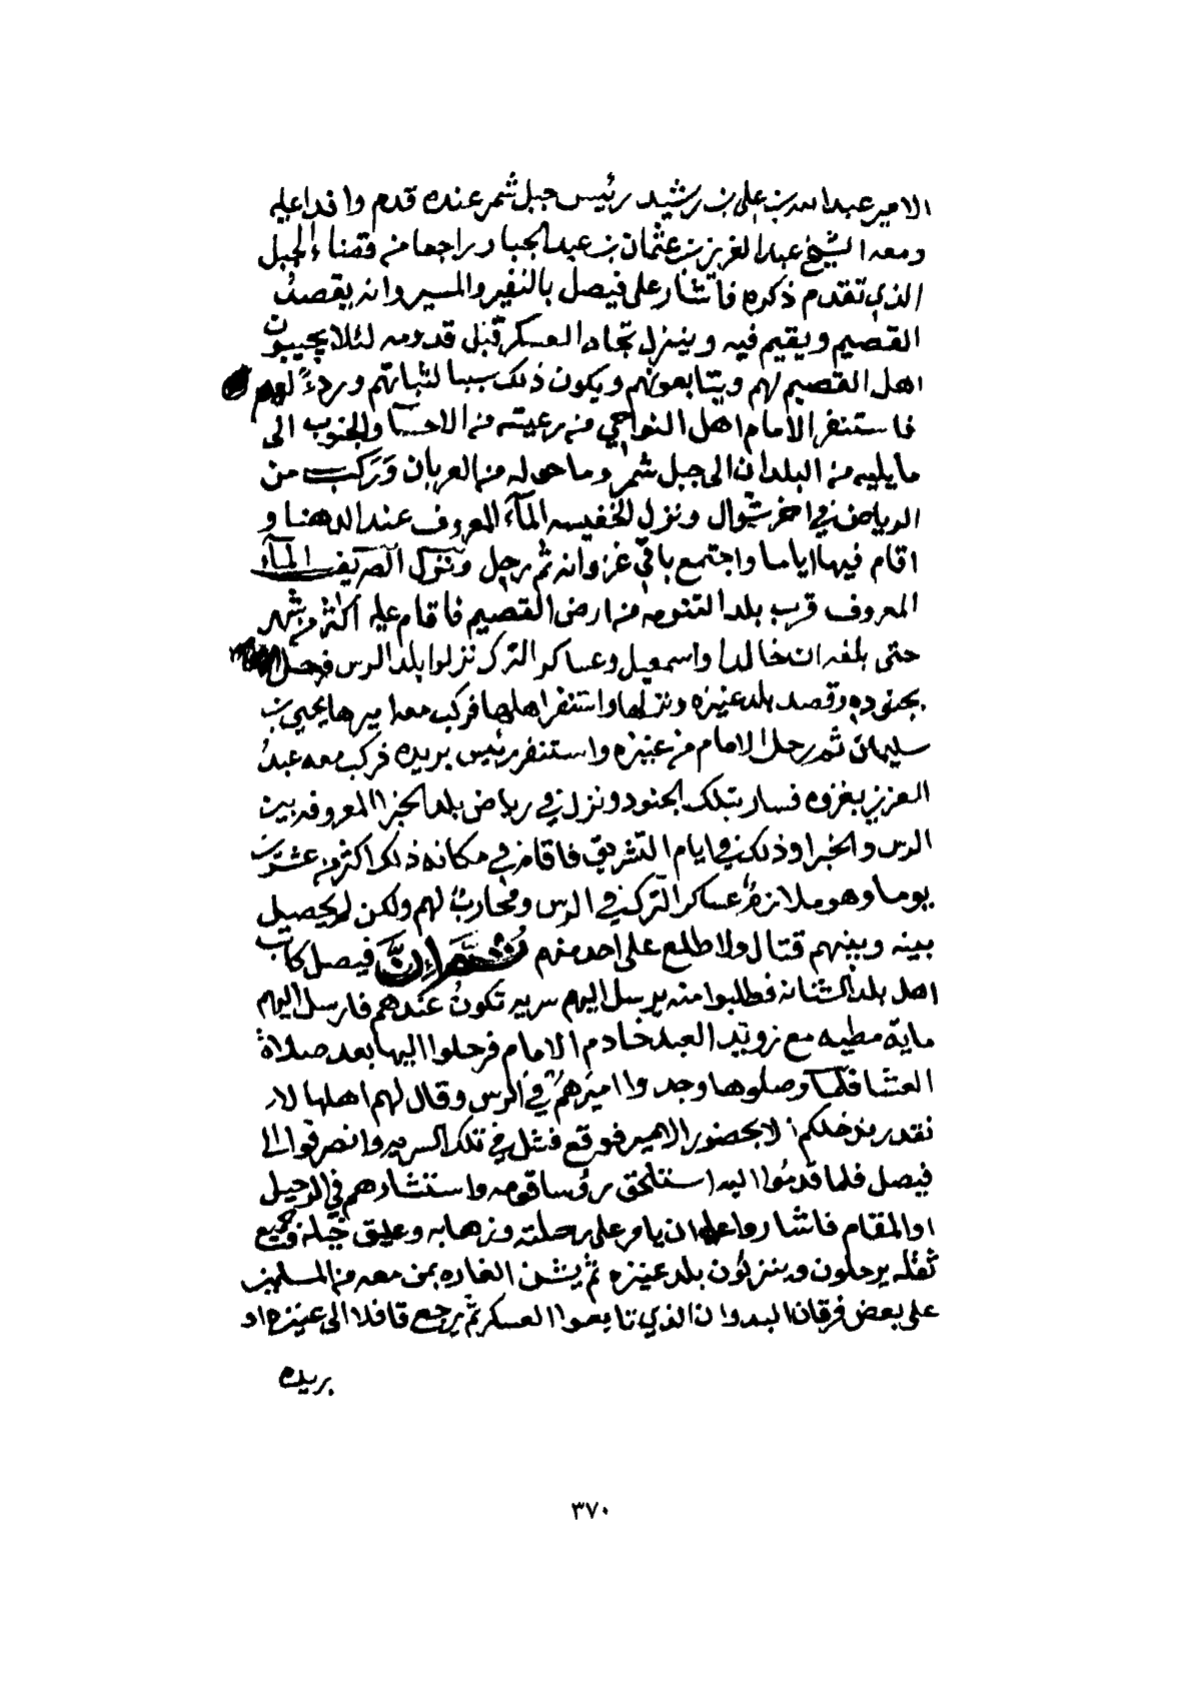 الامير عبد الله بن علي بن رشيد رئيس جبل شمر عنده قدم وافدا عليه
ومعه الشيخ عبد العزيز بن عثمان بن عبد الجبار راجعا من قضاء الجبل
الذي تقدم ذكره فاشار على فيصل بالنفير والمسير وانه يقصد
القصيم ويقيم فيه وينزل تجاه العسكر قبل قدومه لئلا يجيبون
اهل القصيم لهم ويتابعونهم ويكون ذلك سببا لثباتهم وردءً لهم
فاستنفر الامام اهل النواحي من رعيته من الاحسآ والجنوب الى
ما يليه من البلدان الى جبل شمر وما حوله من العربان وَرَكب من
الرياض في اخر شوال ونزل الخفيسه المآء المعروف عند الدهنا و
اقام فيها اياما واجتمع باقي غزوانه ثم رحل ونزل الصريف المآء
المعروف قرب بلد التنومه من ارض القصيم فاقام عليه اكثر من شهر
حتى بلغه ان خالدا واسمعيل وعساكر الترك نزلوا بلد الرس فرحل
بجنوده وقصد بلد عنيزه ونزلها واستنفر اهلها فركب معه اميرها يحيى بن
سليمان ثم رحل الامام من عنيزه واستنفر رئيس بريده فركب معه عبدُ
العزيز بغزوه فسار بتلك الجنود ونزل في رياض بلد الخبرا المعروفه بين
الرس والخبرا وذلك في ايام التشريق فاقام في مكانه ذلك اكثر من عشرين
يوما وهو ملازمٌ عساكر الترك في الرس ومحاربٌ لهم ولكن لم يحصل
بينه وبينهم قتال ولا طلع على احد منهم ثُمَّ إِنَّ فيصل كاتب
اهل بلد الشنانه فطلبوا منه يرسل اليهم سريه تكونُ عندهم فارسل اليهم
ماية مطيه مع زويّد العبد خادم الامام فرحلوا اليها بعد صلاة
العشا فلمّا وصلوها وجدوا اميرَهُم في الرس وقال لهم اهلها لا
نقدر ندخلكم الا بحضور الامير فوقع فشل في تلك السريه وانصرفوا الى
فيصل فلما قدمُوا اليه استلحق رؤسا قومه واستشارهم في الرحيل
او المقام فاشاروا عليه ان يامر على رحلته وزهابه وعليق خيله وجميع
ثقله يرحلون وينزلون بلد عنيزه ثم يشن الغاره بمن معه من المسلمين
على بعض فرقان البدوان الذي تابعوا العسكر ثم يرجع قافلا الى عنيزه او
بريده
٣٧٠